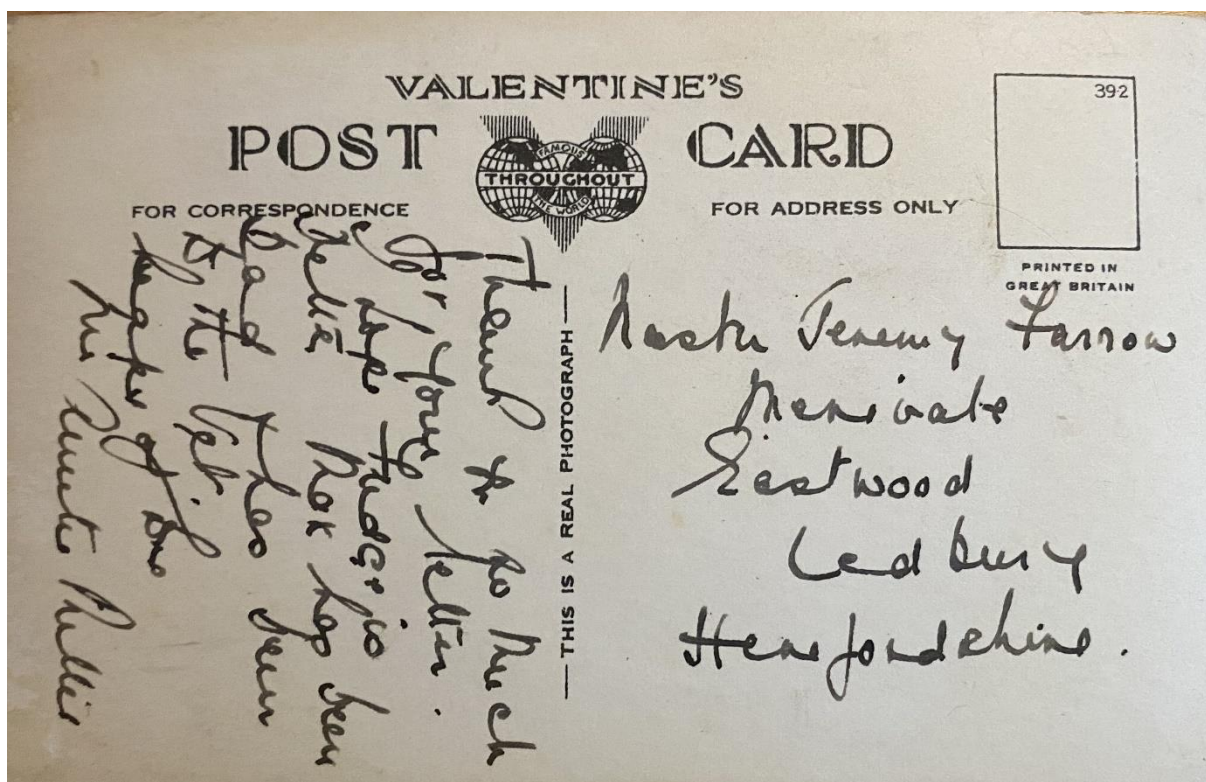 VALENTINE'S
POST CARD
FAMOUS
THROUGHOUT
THE WORLD
FOR CORRESPONDENCE
FOR ADDRESS ONLY
392
PRINTED IN
GREAT BRITAIN
THIS IS A REAL PHOTOGRAPH
Thank you so much
for your letter.
I hope Fudge is
better Max has been
bad & has been
to the Vet.
heaps of love
Auntie
Master Jeremy Farrow
Merivale
Eastwood
Ledbury
Herefordshire.